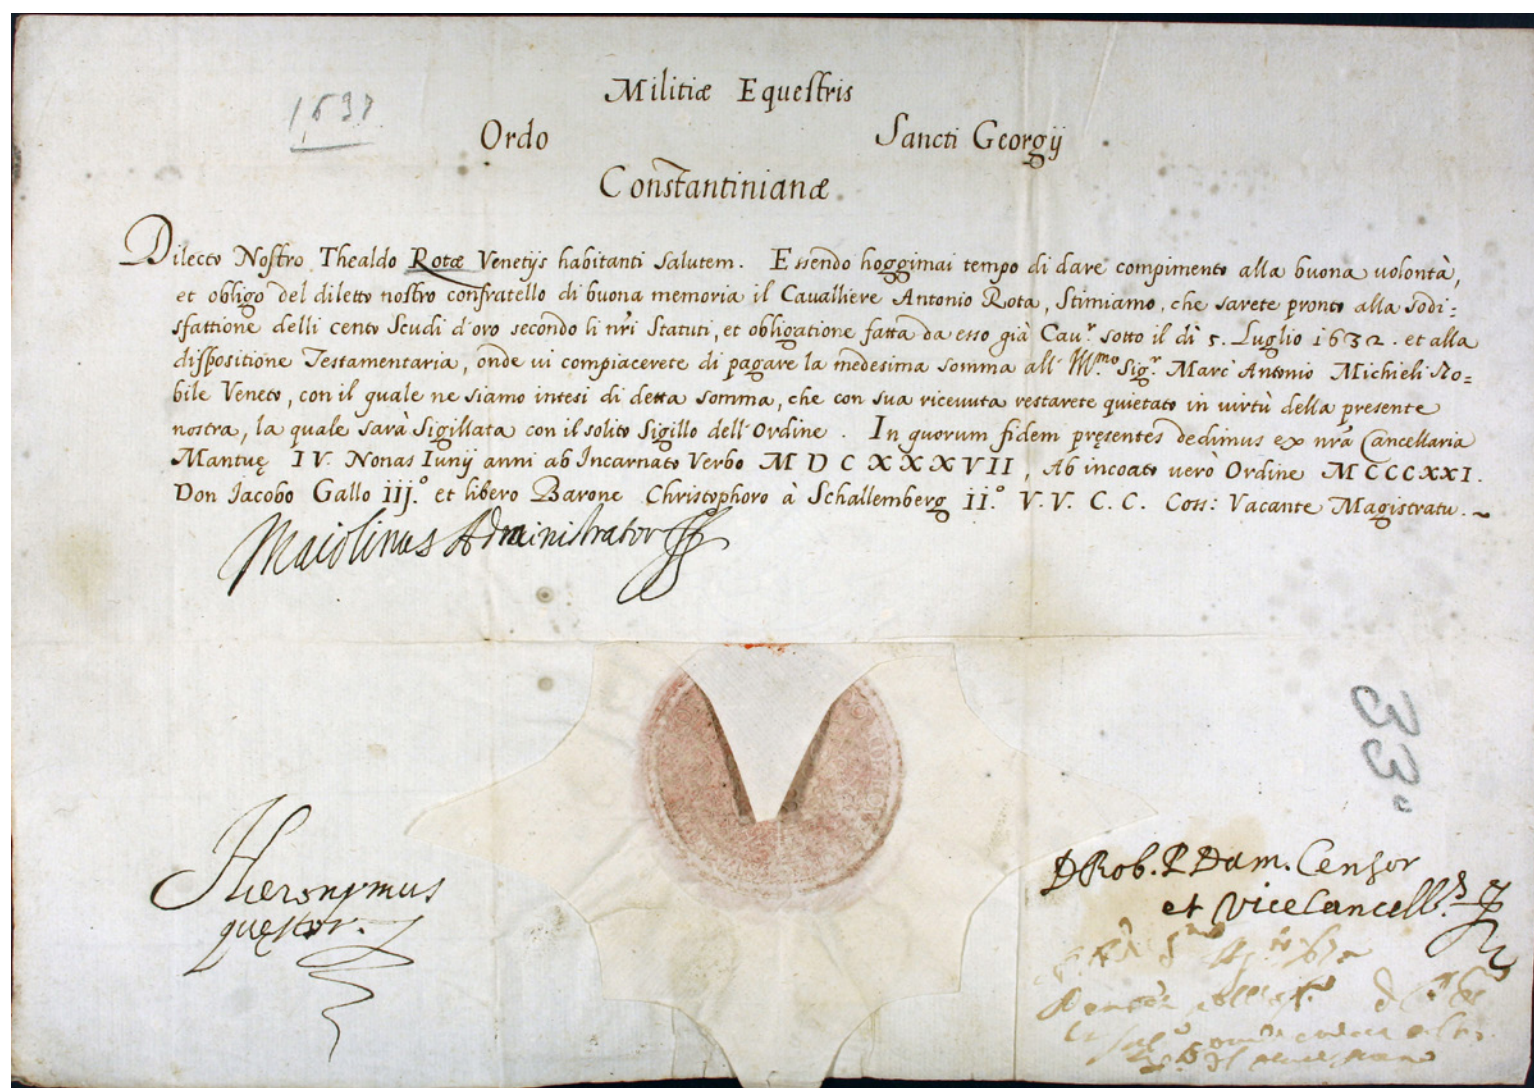 1637
Militiæ Equestris
Ordo Sancti Georgij
Constantinianæ
Dilecto Nostro Thealdo Rotæ Venetijs habitanti salutem. Essendo hoggimai tempo di dare compimento alla buona uolontà,
et obligo del diletto nostro confratello di buona memoria il Cauалliere Antonio Rota, Stimiamo, che sarete pronto alla sodi:
sfattione delli cento Scudi d'oro secondo li nr̃i Statuti, et obligatione fatta da esso già Cau.r sotto il dì 5. Luglio 1632. et alla
dispositione Testamentaria, onde ui compiacerete di pagare la medesima somma all' Ill.mo Sig.r Marc' Antonio Michieli No=
bile Veneto, con il quale ne siamo intesi di detta somma, che con sua riceuuta restarete quietato in uirtù della presente
nostra, la quale sarà Sigillata con il solito Sigillo dell'Ordine. In quorum fidem pręsentes dedimus ex nr̃a Cancellaria
Mantuę IV. Nonas Iunij anni ab Incarnato Verbo MDCXXXVII, Ab incoato uerò Ordine MCCCXXI.
Don Jacobo Gallo iij.° et libero Barone Christophoro à Schallemberg ii.° V.V. C.C. Coss: Vacante Magistratu.~
Maiolinus Administrator
33
Hieronymus
quęstor.
D Rob. P Dam. Censor
et ViceCancell.s